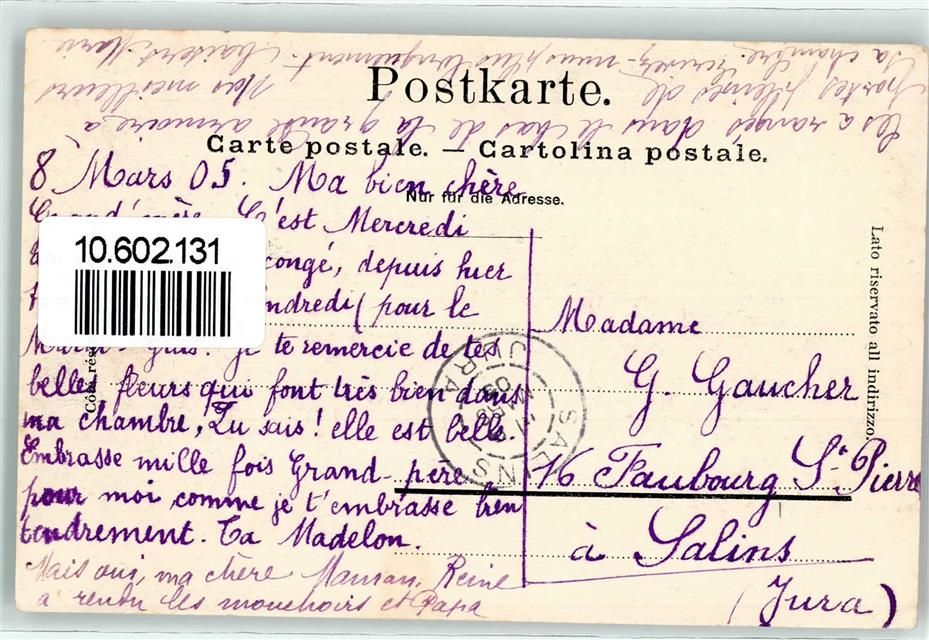 Postkarte.
Carte postale. — Cartolina postale.
Nur für die Adresse.
8 Mars 05. Ma bien chère
Grand'mère. C'est Mercredi
congé, depuis hier
(pour le
Mardi-gras. Je te remercie de tes
belles fleurs qui font très bien dans
ma chambre, Tu sais! elle est belle.
Embrasse mille fois Grand-père
pour moi comme je t'embrasse bien
tendrement. Ta Madelon.
Mais oui, ma chère Maman, Reine
a rendu les mouchoirs et Papa
les a rangés dans le bas de la grande armoire à
portes pleines de Nos meilleurs
sa chambre. longuement baisers. Marie
10.602.131
Madame
G. Gaucher
16 Faubourg St Pierre
à Salins
(Jura)
Lato riservato all indirizzo.
SALINS
JURA